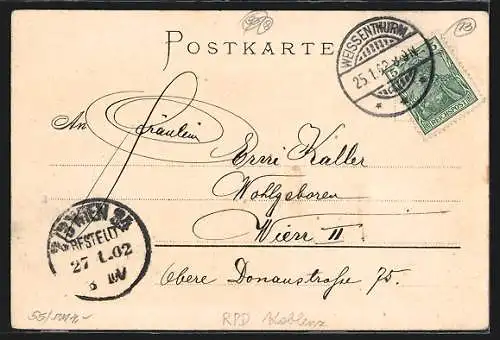 POSTKARTE
WEISSENTHURM
25.1.02.8-9N
REICHSPOST
5
An Fräulein
Erni Kaller
Wohlgeboren
Wien II
Obere Donaustraße 75.
WIEN
BESTELLT
27 1.02
RPD Koblenz